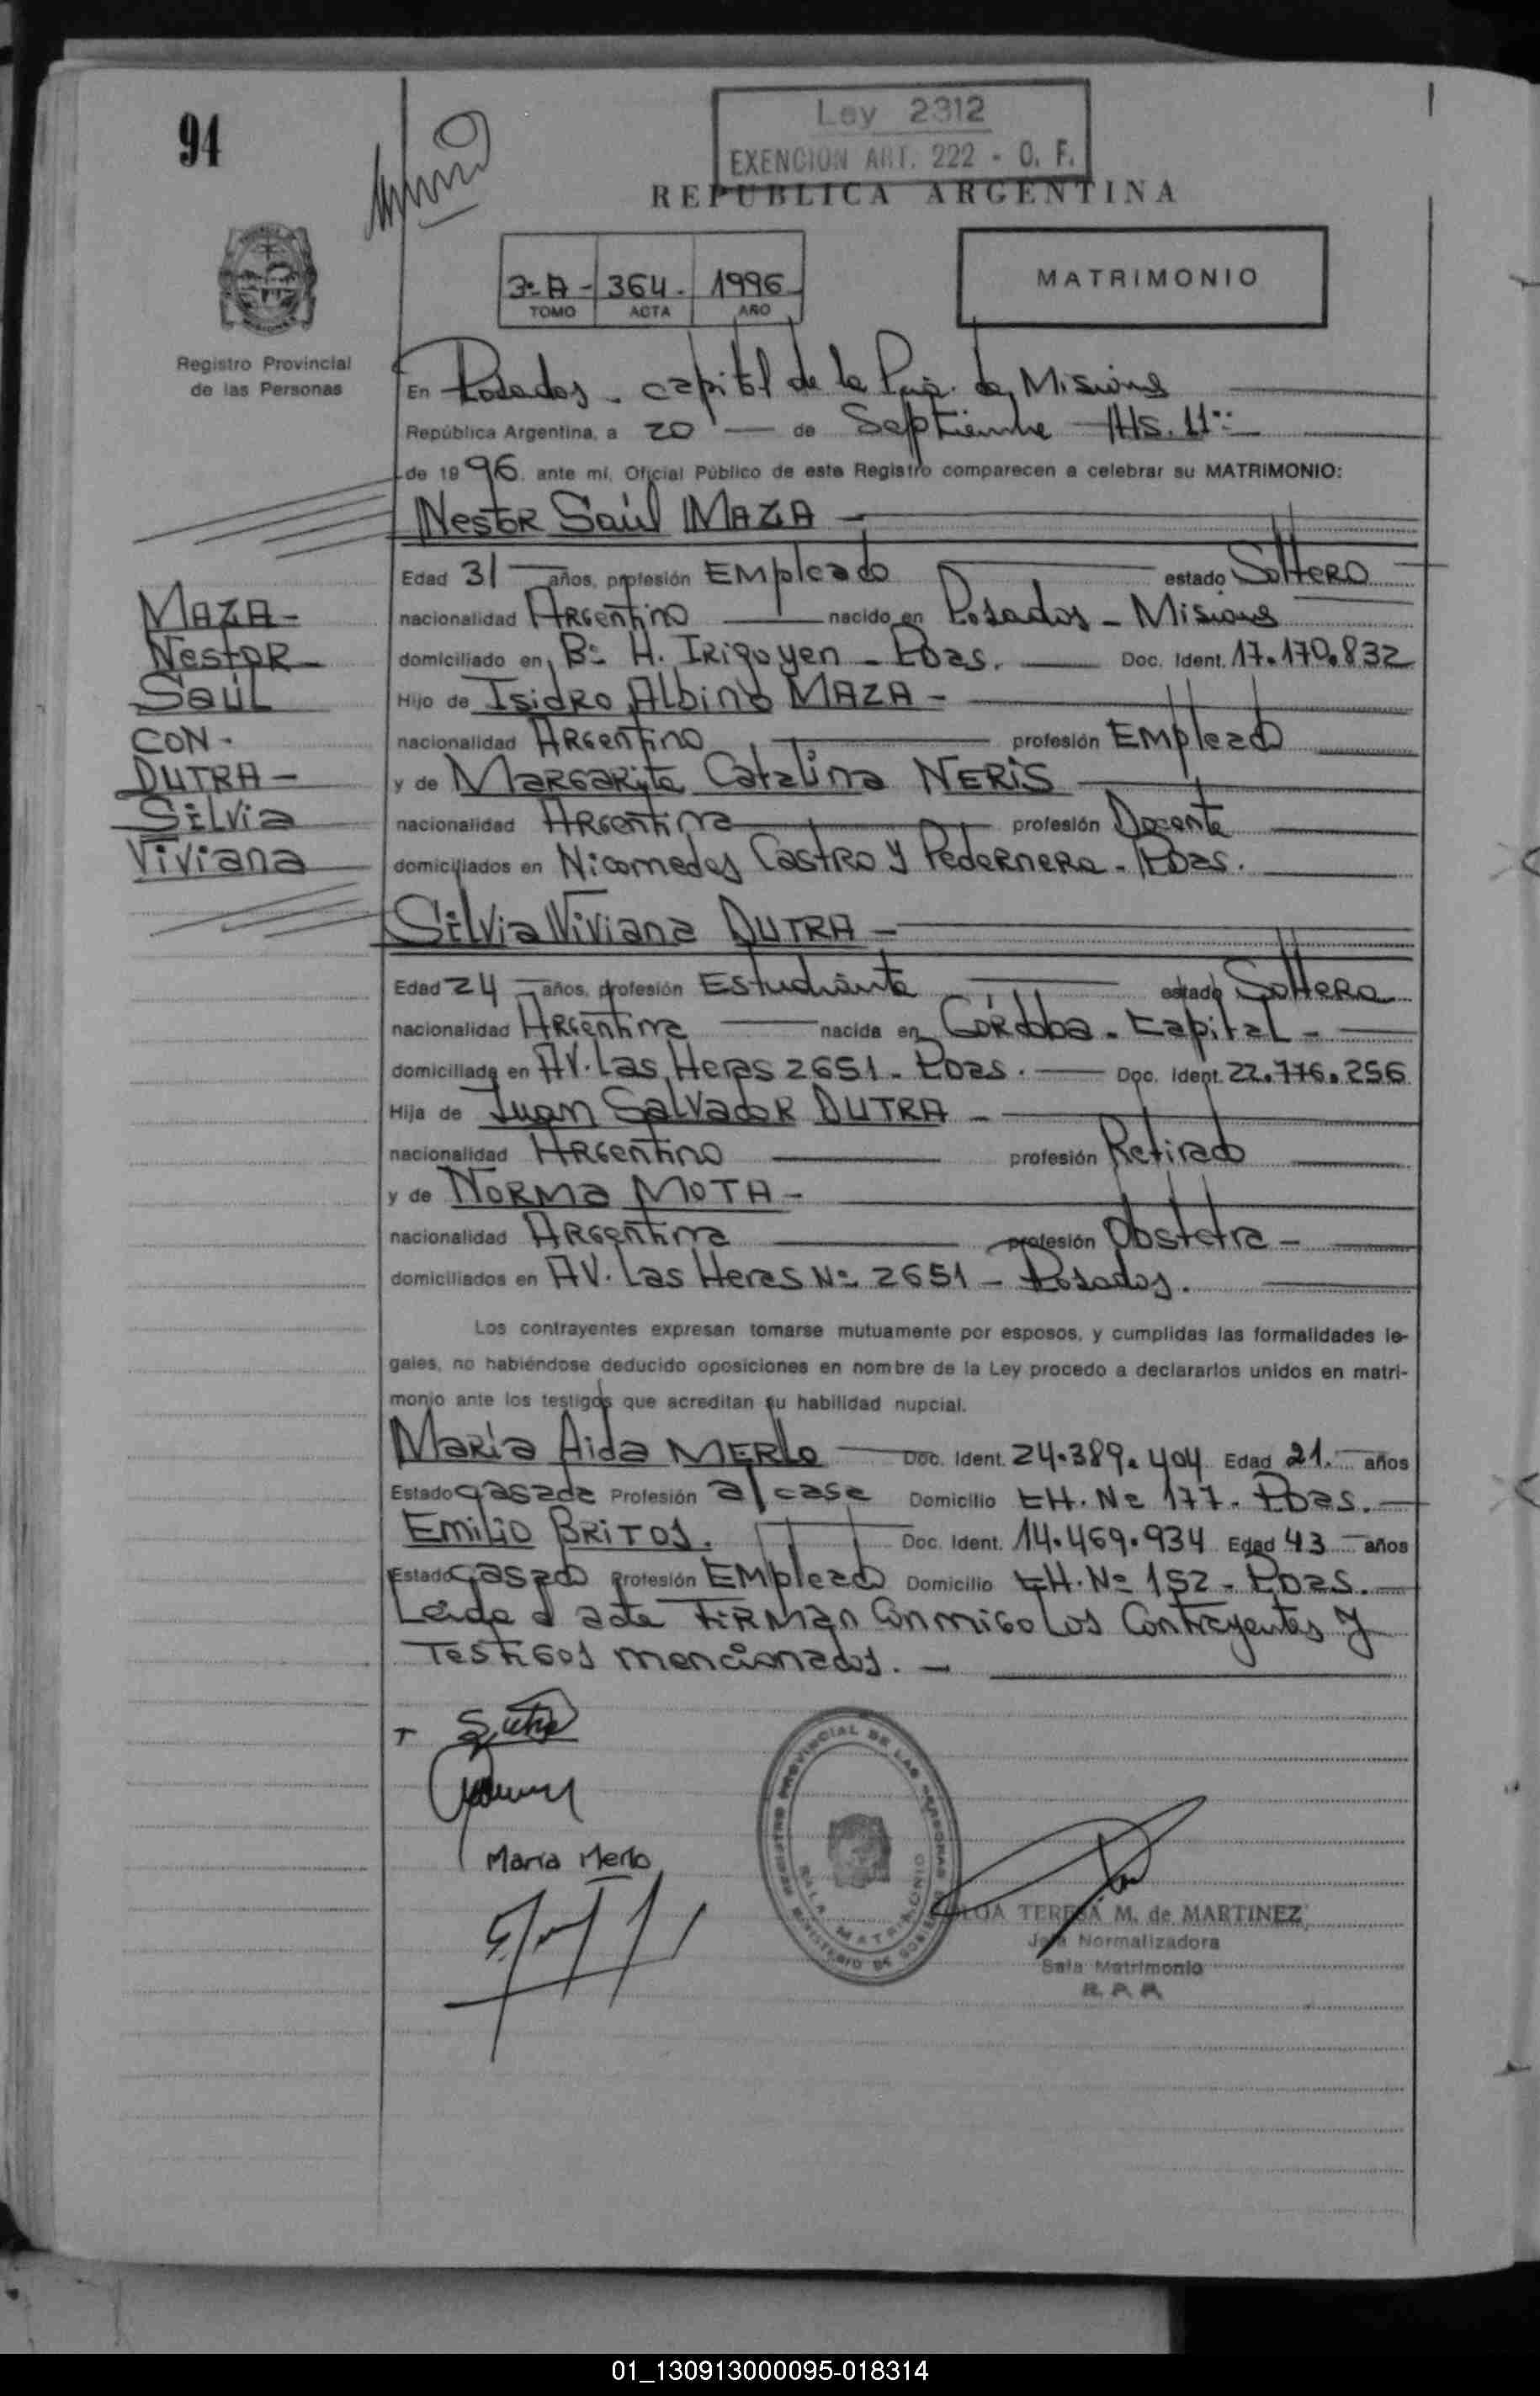 94
Ley 2312
EXENCION ART. 222 - O. F.
REPUBLICA ARGENTINA
3º A - 364 . 1996
TOMO ACTA AÑO
MATRIMONIO
Registro Provincial
de las Personas
En Posadas - capital de la Pcia. de Misiones
República Argentina, a 20 de Septiembre HS. 11
de 1996, ante mí, Oficial Público de este Registro comparecen a celebrar su MATRIMONIO:
Nestor Saúl MAZA -
Edad 31 años, profesión Empleado estado Soltero
nacionalidad Argentino nacido en Posadas - Misiones
domiciliado en Bº H. Irigoyen - Pdas. Doc. Ident. 17.170.832
Hijo de Isidro Albino MAZA -
nacionalidad Argentino profesión Empleado
y de Margarita Catalina NERIS
nacionalidad Argentina profesión Docente
domiciliados en Nicomedes Castro y Pedernera - Pdas.
MAZA -
Nestor
Saúl
CON -
DUTRA -
Silvia
Viviana
Silvia Viviana DUTRA -
Edad 24 años, profesión Estudiante estado Soltera
nacionalidad Argentina nacida en Córdoba - Capital -
domiciliada en AV. Las Heras 2651 - Pdas. Doc. Ident. 22.776.256
Hija de Juan Salvador DUTRA -
nacionalidad Argentino profesión Retirado
y de Norma MOTA -
nacionalidad Argentina profesión Obstetra -
domiciliados en AV. Las Heras Nº 2651 - Posadas.
Los contrayentes expresan tomarse mutuamente por esposos, y cumplidas las formalidades le-
gales, no habiéndose deducido oposiciones en nombre de la Ley procedo a declararlos unidos en matri-
monio ante los testigos que acreditan su habilidad nupcial.
María Aida MERLO Doc. Ident. 24.389.404 Edad 21. años
Estado casada Profesión a/case Domicilio CH. Nº 177 - Pdas. -
Emilio BRITOS. Doc. Ident. 14.469.934 Edad 43 años
Estado casado Profesión Empleado Domicilio CH. Nº 152 - Pdas. -
Leída el acta firman conmigo los contrayentes y
testigos mencionados. -
María Merlo
REGISTRO PROVINCIAL DE LAS PERSONAS
SALA MATRIMONIO
MINISTERIO DE GOBIERNO
TERESA M. de MARTINEZ
Jefa Normalizadora
Sala Matrimonio
R. P. P.
01_130913000095-018314